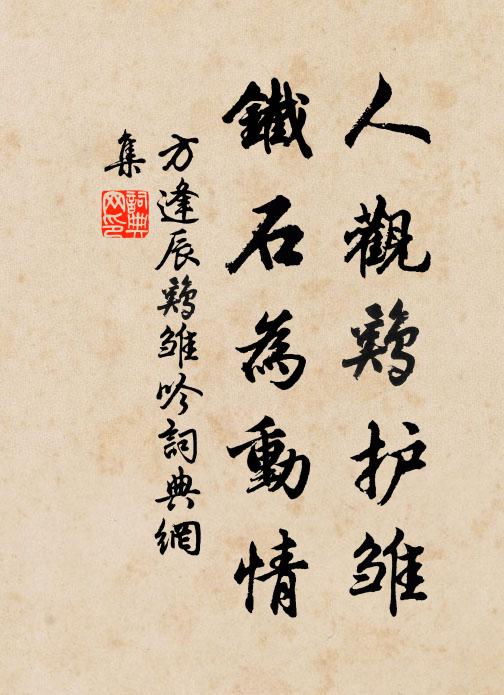 人觀鷄护雏
鐵石為動情
方逢辰鷄雏吟詞典網
集
詞典網印